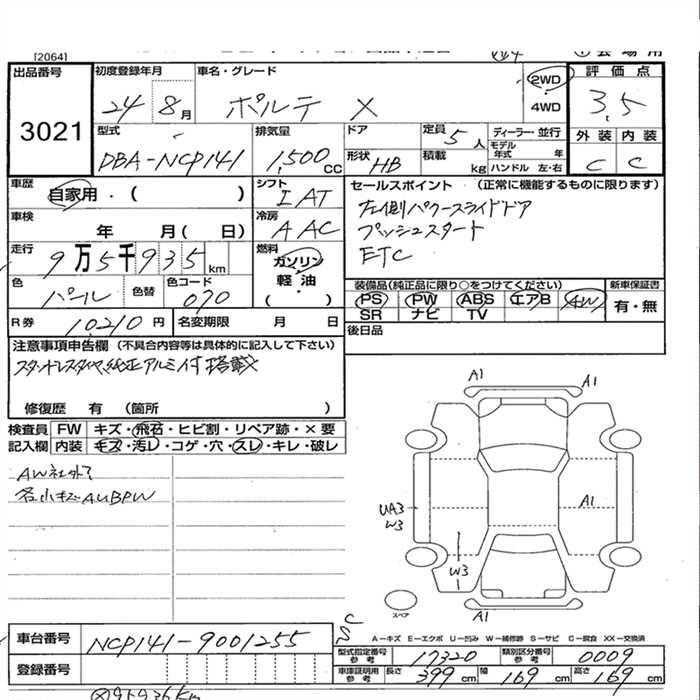 [2064]
出品番号
3021
初度登録年月
24 8月
車名・グレード
ポルテ X
2WD
4WD
評価点
3.5
外装 内装
C C
型式
DBA-NCP141
排気量
1,500 CC
ドア
形状 HB
定員 5人
積載 kg
ディーラー・並行
モデル年式 年
ハンドル 左・右
車歴
自家用・( )
シフト
I AT
車検
年 月( 日)
冷房
A AC
走行
9万5千935km
燃料
ガソリン・軽油・( )
色
パール
色替
色コード
070
R券 10,210円
名変期限 月 日
セールスポイント (正常に機能するものに限ります)
左側パワースライドドア
プッシュスタート
ETC
装備品(純正品に限り○をつけてください)
PS PW ABS エアB AW
SR ナビ TV
新車保証書
有・無
後日品
注意事項申告欄 (不具合内容等は具体的に記入して下さい)
スタットレスタイヤ、純正アルミ付 搭載
修復歴 有 (箇所 )
検査員記入欄
FW キズ・飛石・ヒビ割・リペア跡・×要
内装 キズ・汚レ・コゲ・穴・スレ・キレ・破レ
AW社外
各小キズAUBPW
A1
A1
UA3
W3
A1
W3
A1
スペア
A−キズ E−エクボ U−凹み W−補修跡 S−サビ C−腐食 XX−交換済
車台番号 NCP141-9001255
登録番号
型式指定番号参考 17320
類別区分番号参考 0009
車庫証明用参考 長さ 399cm 幅 169cm 高さ 169cm